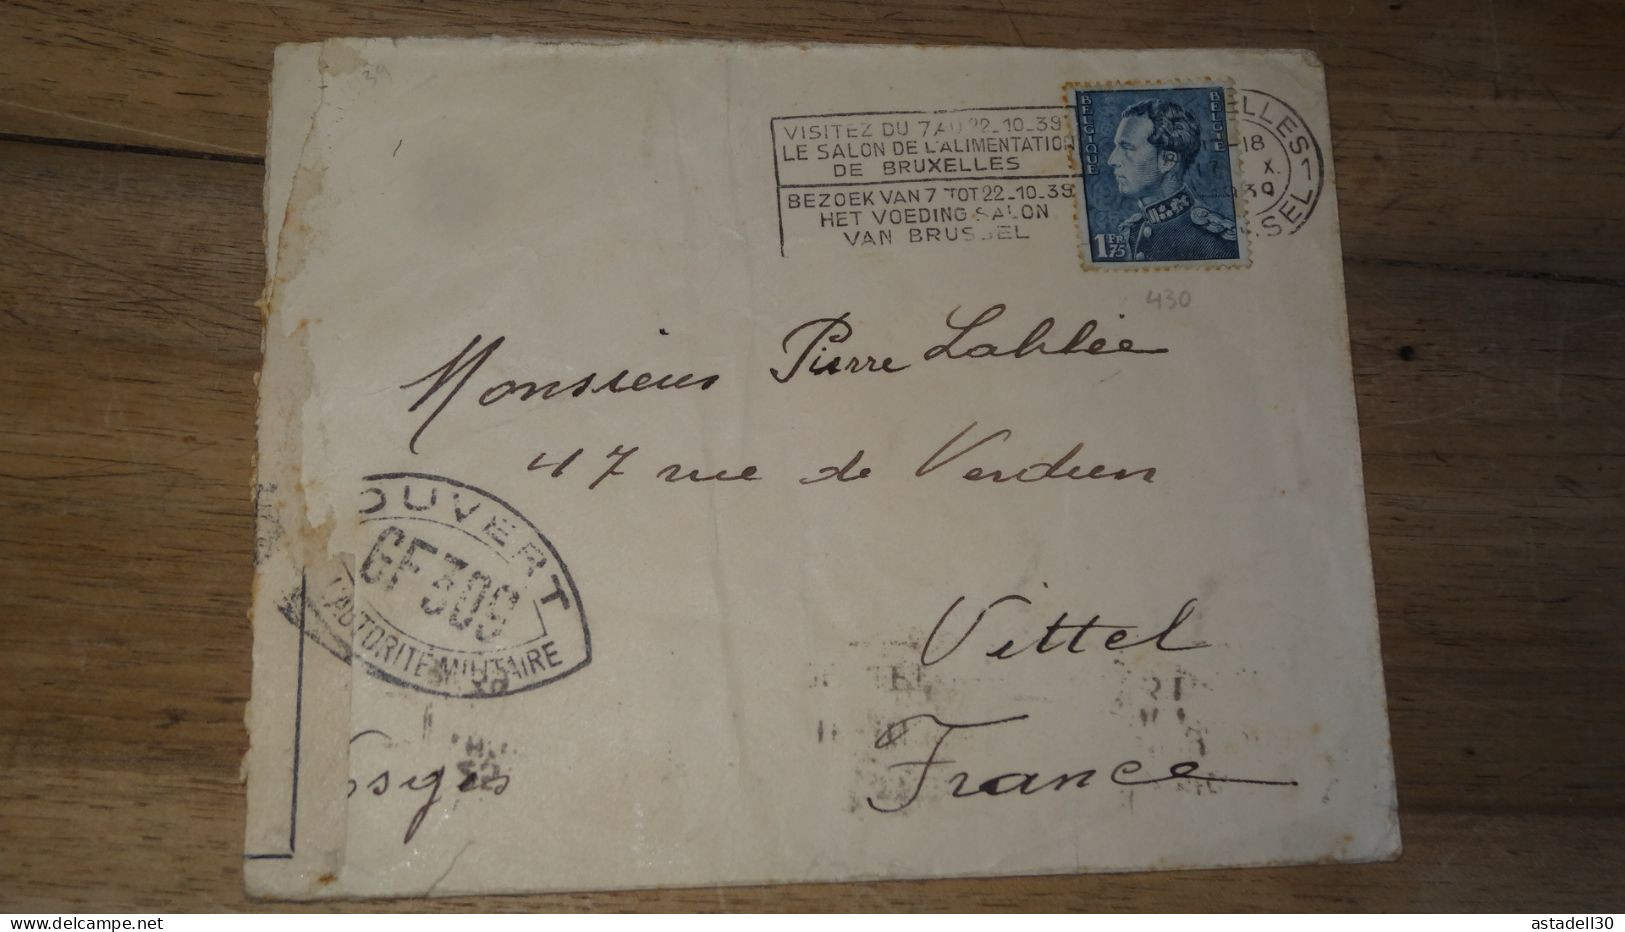 39
VISITEZ DU 7 AU 22_10_39
LE SALON DE L'ALIMENTATION
DE BRUXELLES
BEZOEK VAN 7 TOT 22_10_39
HET VOEDINGSSALON
VAN BRUSSEL
BELGIQUE
BELGIE
1 FR 75
ELLES
-18
X.
1939
SEL
430
Monsieur Pierre Lahlée
47 rue de Verdun
Vittel
France
OUVERT
GF 309
L'AUTORITÉ MILITAIRE
osges
delcampe.net
astadell30